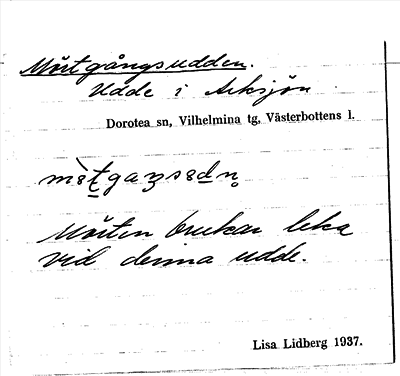 Mörtgångsudden.
Udde i Arksjön
Dorotea sn, Vilhelmina tg, Västerbottens l.
Mörten brukar leka
vid denna udde.
Lisa Lidberg 1937.